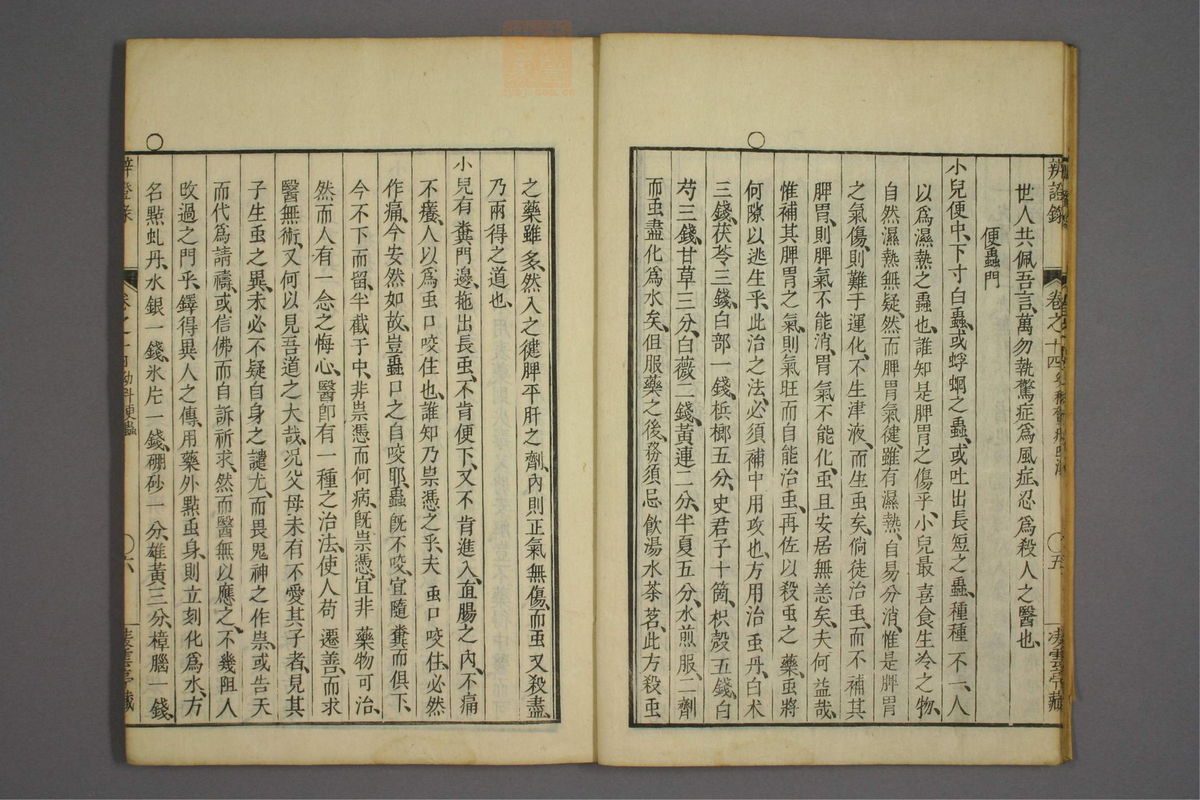 辨證錄
卷之十四
五
凌雲亭藏
世人共佩吾言萬勿執驚症爲風症忍爲殺人之醫也
便蟲門
小兒便中下寸白蟲或蜉蝈之蟲或吐出長短之蟲種種不一人
以爲濕熱之蟲也誰知是脾胃之傷乎小兒最喜食生冷之物
自然濕熱無疑然而脾胃氣健雖有濕熱自易分消惟是脾胃
之氣傷則難于運化不生津液而生虫矣倘徒治虫而不補其
脾胃則脾氣不能消胃氣不能化虫且安居無恙矣夫何益哉
惟補其脾胃之氣則氣旺而自能治虫再佐以殺虫之藥虫將
何隙以逃生乎此治之法必須補中用攻也方用治虫丹白术
三錢茯苓三錢白部一錢梹榔五分史君子十箇枳殼五錢白
芍三錢甘草三分白薇二錢黃連二分半夏五分水煎服二劑
而虫盡化爲水矣但服藥之後務須忌飲湯水茶茗此方殺虫
之藥雖多然入之健脾平肝之劑內則正氣無傷而虫又殺盡
乃兩得之道也
小兒有糞門邊拖出長虫不肯便下又不肯進入直腸之內不痛
不癢人以爲虫口咬住也誰知乃祟憑之乎夫虫口咬住必然
作痛今安然如故豈蟲口之自咬耶蟲既不咬宜隨糞而俱下
今不下而留半截于中非祟憑而何病既祟憑宜非藥物可治
然而人有一念之悔心醫卽有一種之治法使人苟遷善而求
醫無術又何以見吾道之大哉况父母未有不愛其子者見其
子生虫之異未必不疑自身之譴尤而畏鬼神之作祟或告天
而代爲請禱或信佛而自訴祈求然而醫無以應之不幾阻人
改過之門乎鐸得異人之傳用藥外點虫身則立刻化爲水方
名點虬丹水銀一錢氷片一錢硼砂一分雄黃三分樟腦一錢
辛證錄
卷之十四幼科便蟲
六
凌雲亭藏